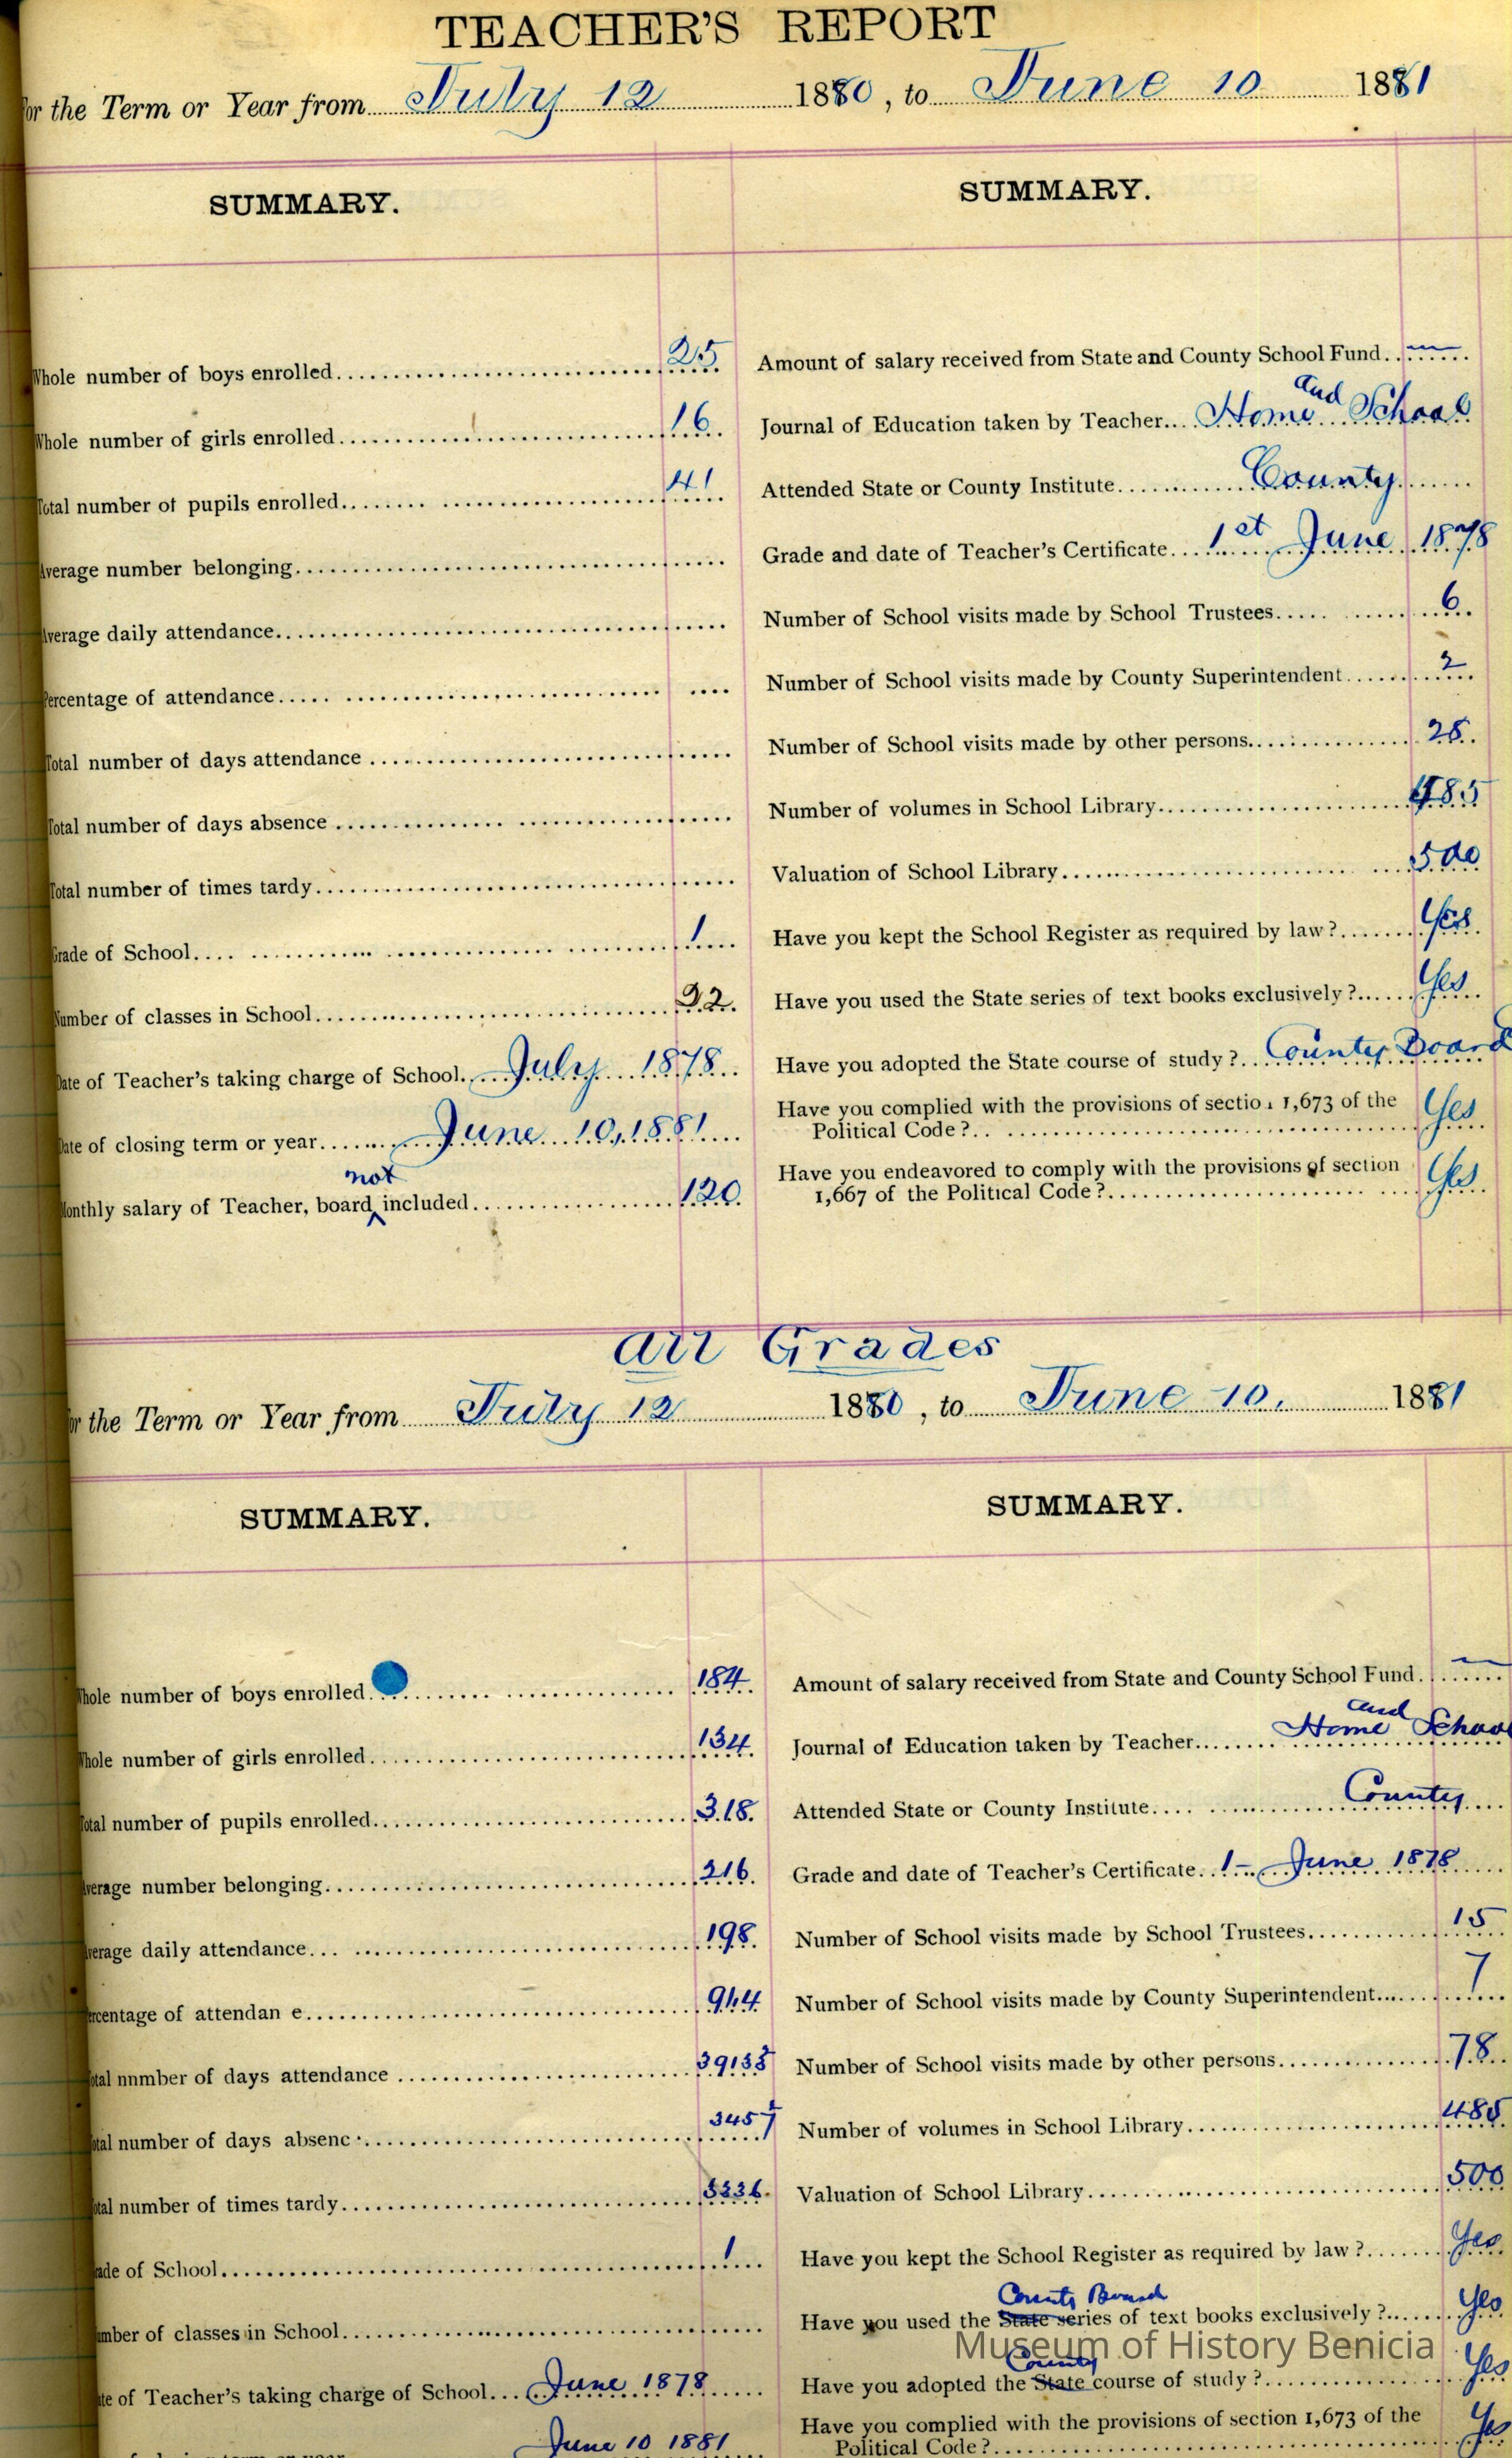 TEACHER'S REPORT
or the Term or Year from July 12 1880, to June 10 1881
SUMMARY.
Whole number of boys enrolled 25
Whole number of girls enrolled 16
Total number of pupils enrolled 41
Average number belonging
Average daily attendance
Percentage of attendance
Total number of days attendance
Total number of days absence
Total number of times tardy
Grade of School 1
Number of classes in School 22
Date of Teacher's taking charge of School July 1878
Date of closing term or year June 10, 1881
not
Monthly salary of Teacher, board ^ included 120
SUMMARY.
Amount of salary received from State and County School Fund —
and
Journal of Education taken by Teacher Home School
Attended State or County Institute County
Grade and date of Teacher's Certificate 1st June 1878
Number of School visits made by School Trustees 6
Number of School visits made by County Superintendent 2
Number of School visits made by other persons 28
Number of volumes in School Library 485
Valuation of School Library 500
Have you kept the School Register as required by law? Yes
Have you used the State series of text books exclusively? Yes
Have you adopted the State course of study? County Board
Have you complied with the provisions of section 1,673 of the
Political Code? Yes
Have you endeavored to comply with the provisions of section
1,667 of the Political Code? Yes
All Grades
or the Term or Year from July 12 1880, to June 10. 1881
SUMMARY.
Whole number of boys enrolled 184
Whole number of girls enrolled 134
Total number of pupils enrolled 318
Average number belonging 216
Average daily attendance 198
ercentage of attendan e
otal nnmber of days attendance
otal number of days absenc 3457
otal number of times tardy
ade of School 1
mber of classes in School
te of Teacher's taking charge of School June 1878
June 10 1881
SUMMARY.
Amount of salary received from State and County School Fund —
and
Journal of Education taken by Teacher Home School
Attended State or County Institute County
Grade and date of Teacher's Certificate 1- June 1878
Number of School visits made by School Trustees 15
Number of School visits made by County Superintendent 7
Number of School visits made by other persons 78
Number of volumes in School Library 485
Valuation of School Library 500
Have you kept the School Register as required by law? Yes
County Board
Have you used the State series of text books exclusively? Yes
Museum of History Benicia
County
Have you adopted the State course of study? Yes
Have you complied with the provisions of section 1,673 of the
Political Code? Yes